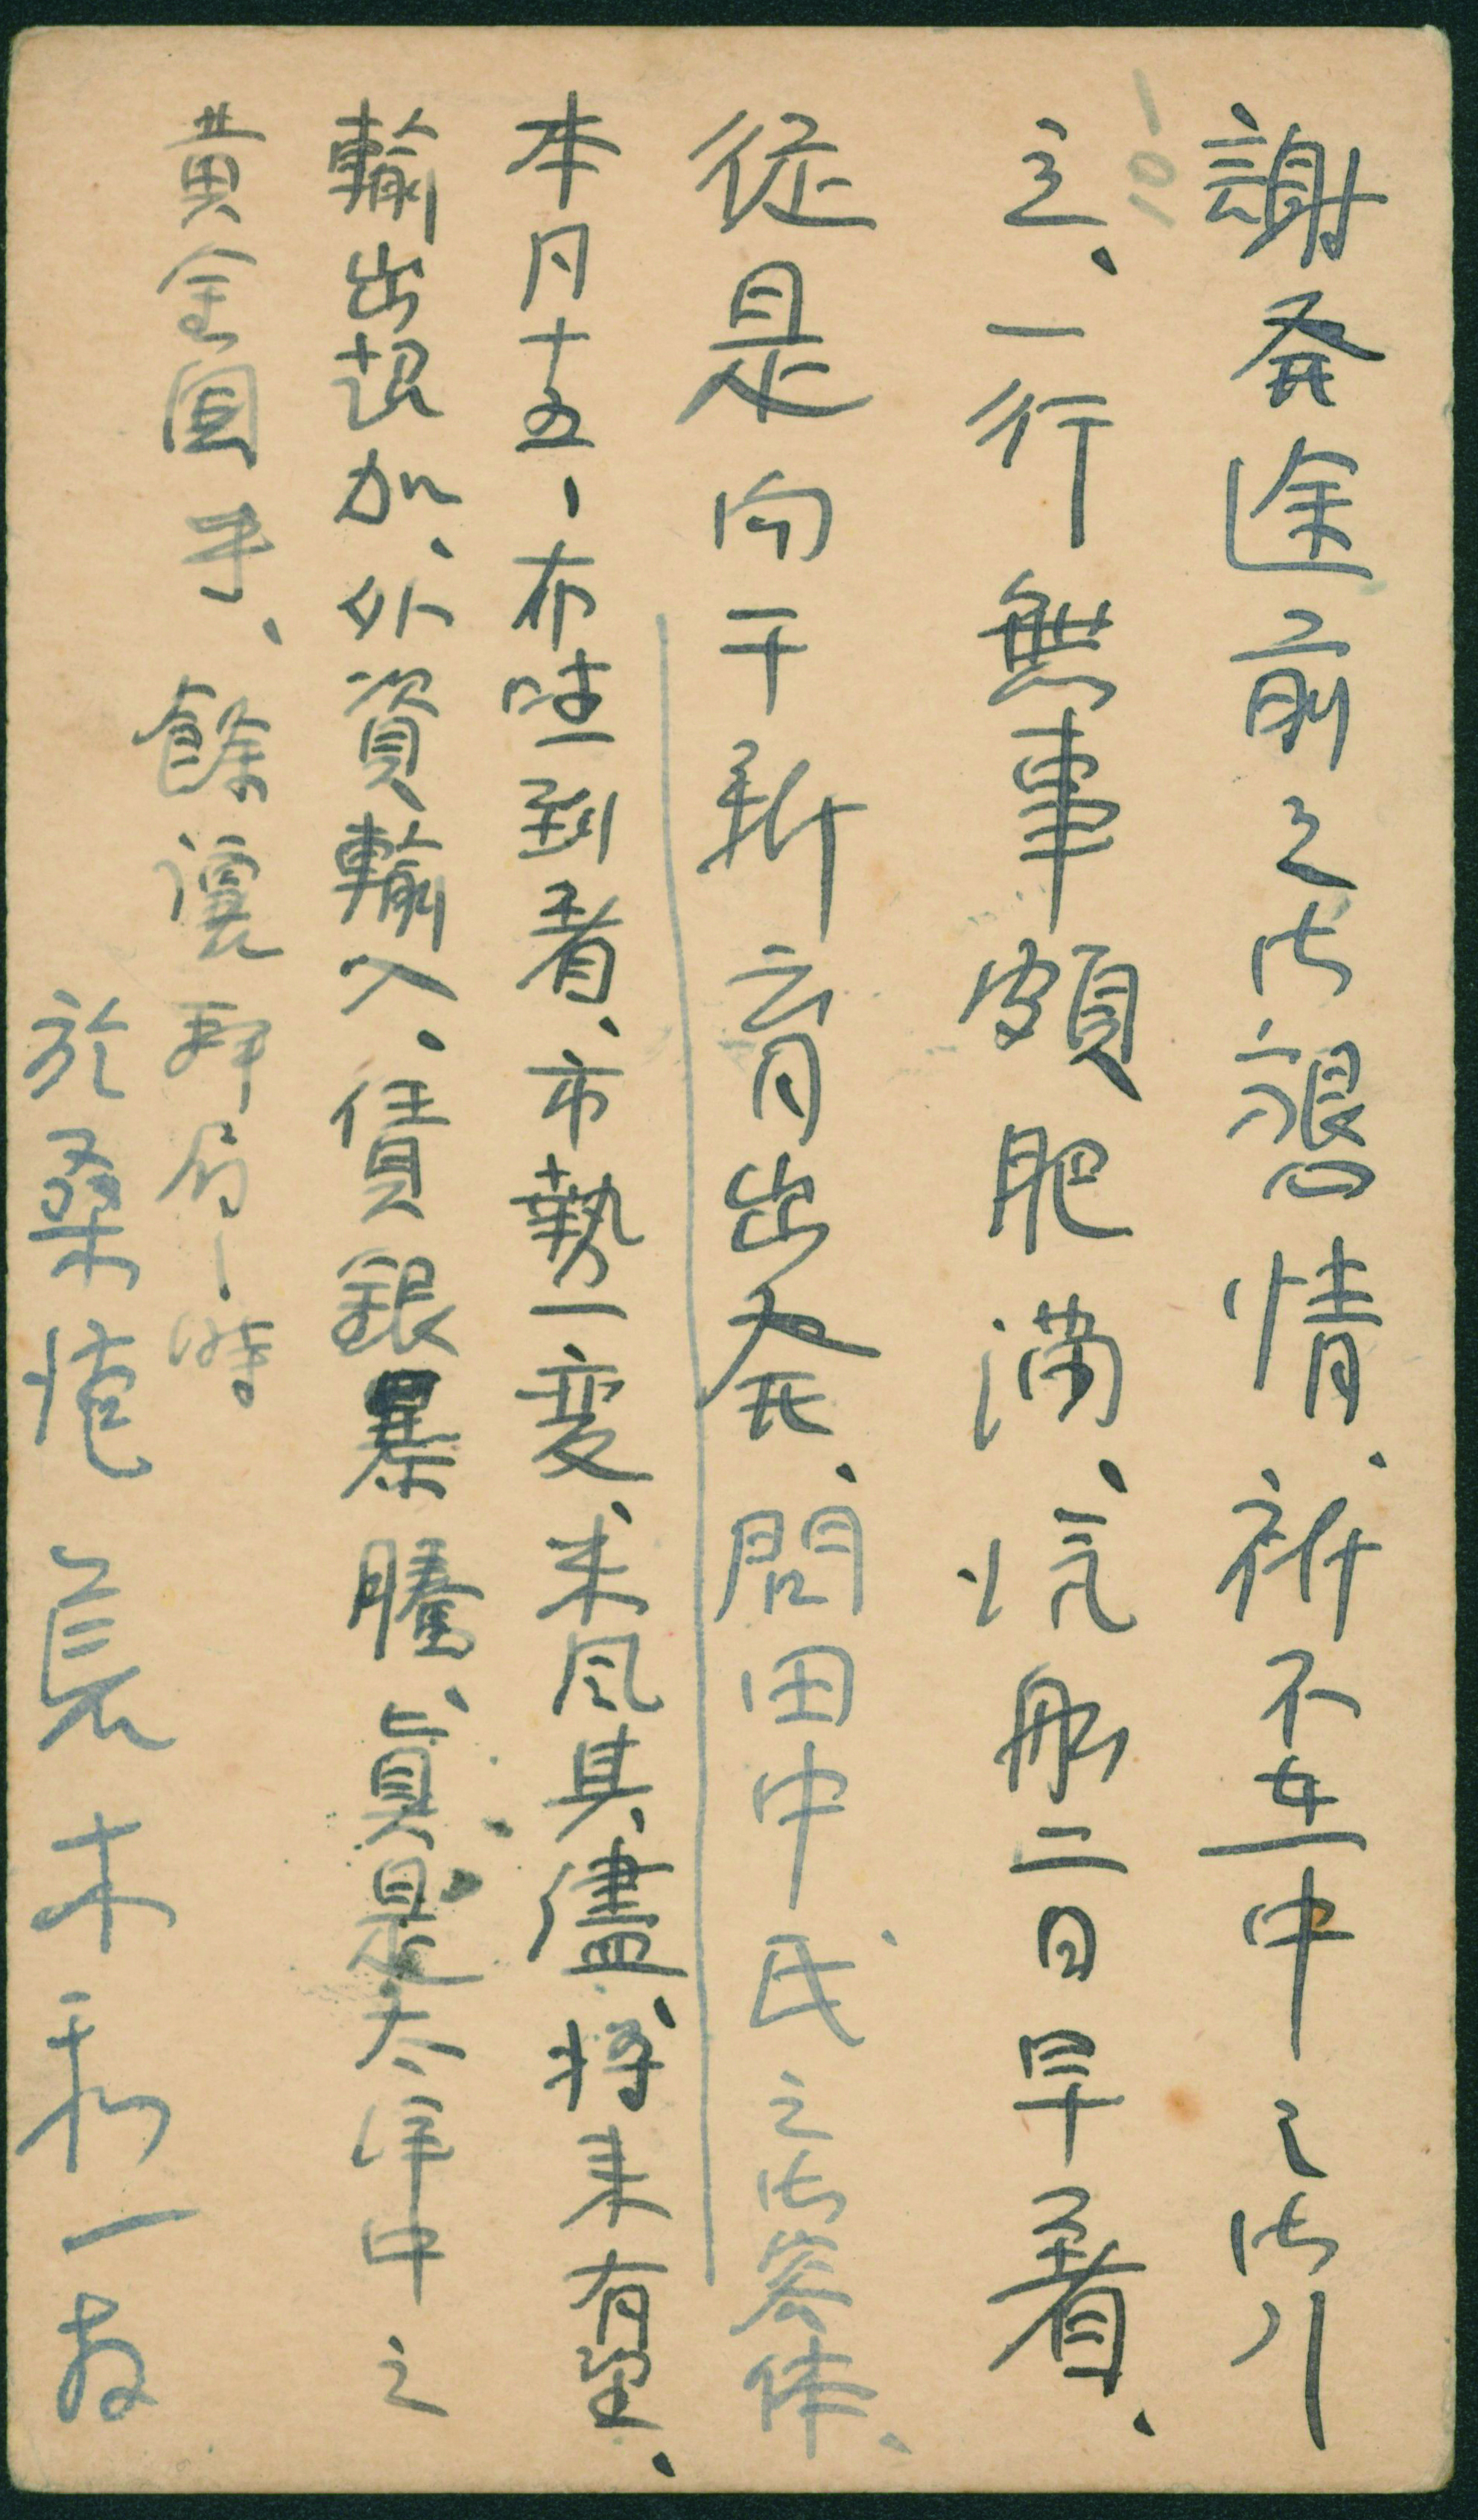 謝発途前之御懇情、祈不在中之御引
立、一行無事頗肥満、汽船二日早着、
従是向于新育出発、問田中氏之御容体、
本月十五、布哇到着、市勢一変、来風其儘、将来有望、
輸出超加、外資輸入、賃銀暴騰、眞是太洋中之
黄金国乎、餘讓拜眉ノ時
於桑港 長末和一 拝
10-1